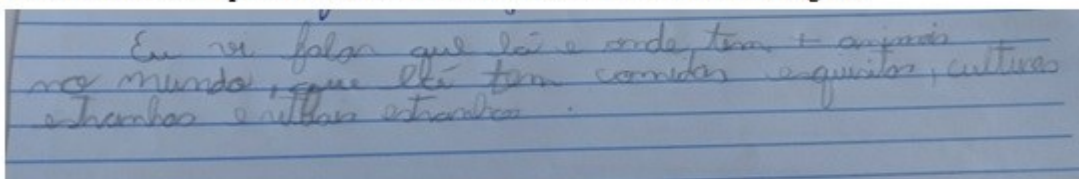 Eu vi falar que lá e onde tem + animais
no mundo, que lá tem comidas esquisitas, culturas
estranhas e estranhas.